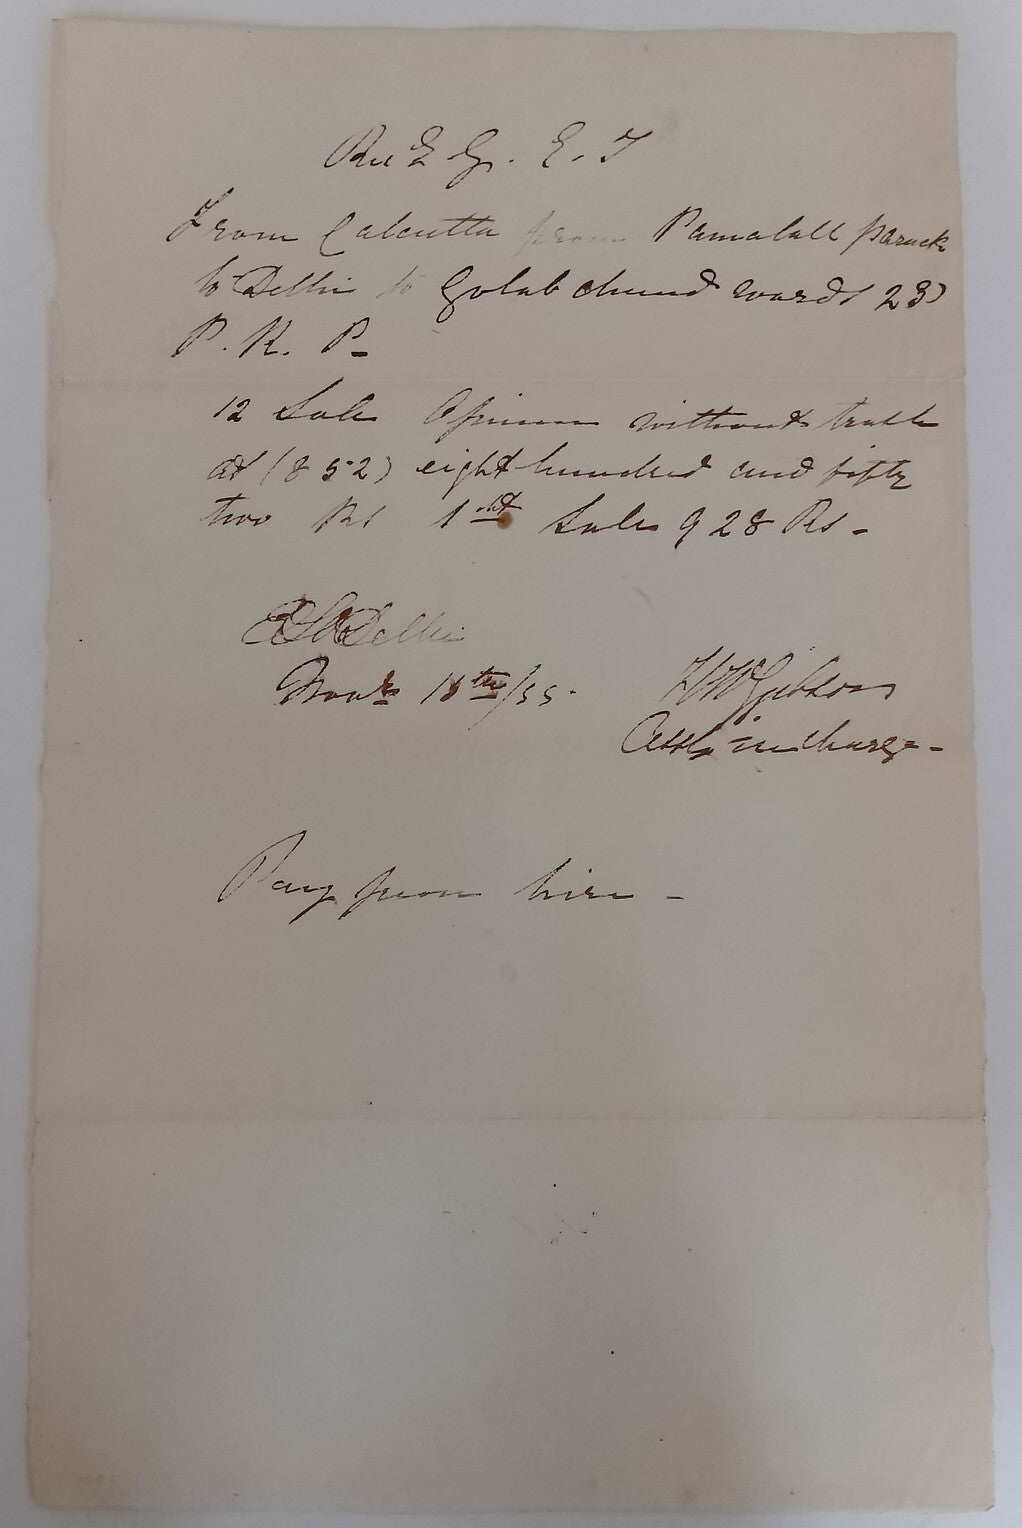 G. E. T
From Calcutta from Pamalall paruck
to Delhi to Golabchund words 23)
P. R. P-
12 Sale Opium without truble
at (852) eight hundred and fifty
two Rs 1st Sale 928 Rs-
Delhi
Novr /55.
H W Gibson
Asst in charge-
Pay peon hire-